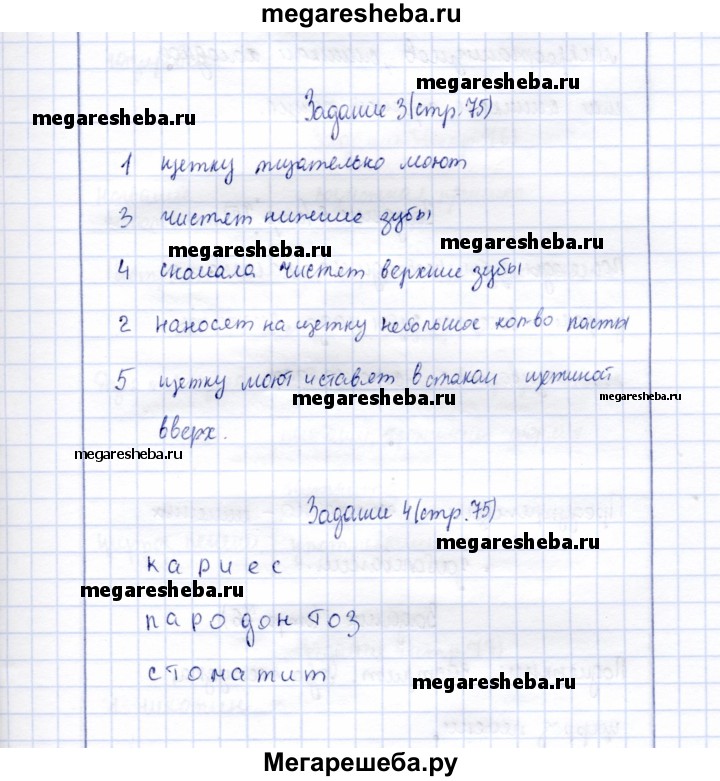 megaresheba.ru
megaresheba.ru
Задание 3(стр.75)
megaresheba.ru
1 щетку тщательно моют
3 чистят нижние зубы
megaresheba.ru
megaresheba.ru
4 сначала чистят верхние зубы
2 наносят на щетку небольшое кол-во пасты
5 щетку моют и ставят в стакан щетиной
megaresheba.ru
megaresheba.ru
вверх.
megaresheba.ru
Задание 4(стр.75)
megaresheba.ru
кариес
megaresheba.ru
пародонтоз
стоматит
megaresheba.ru
Мегарешеба.ру